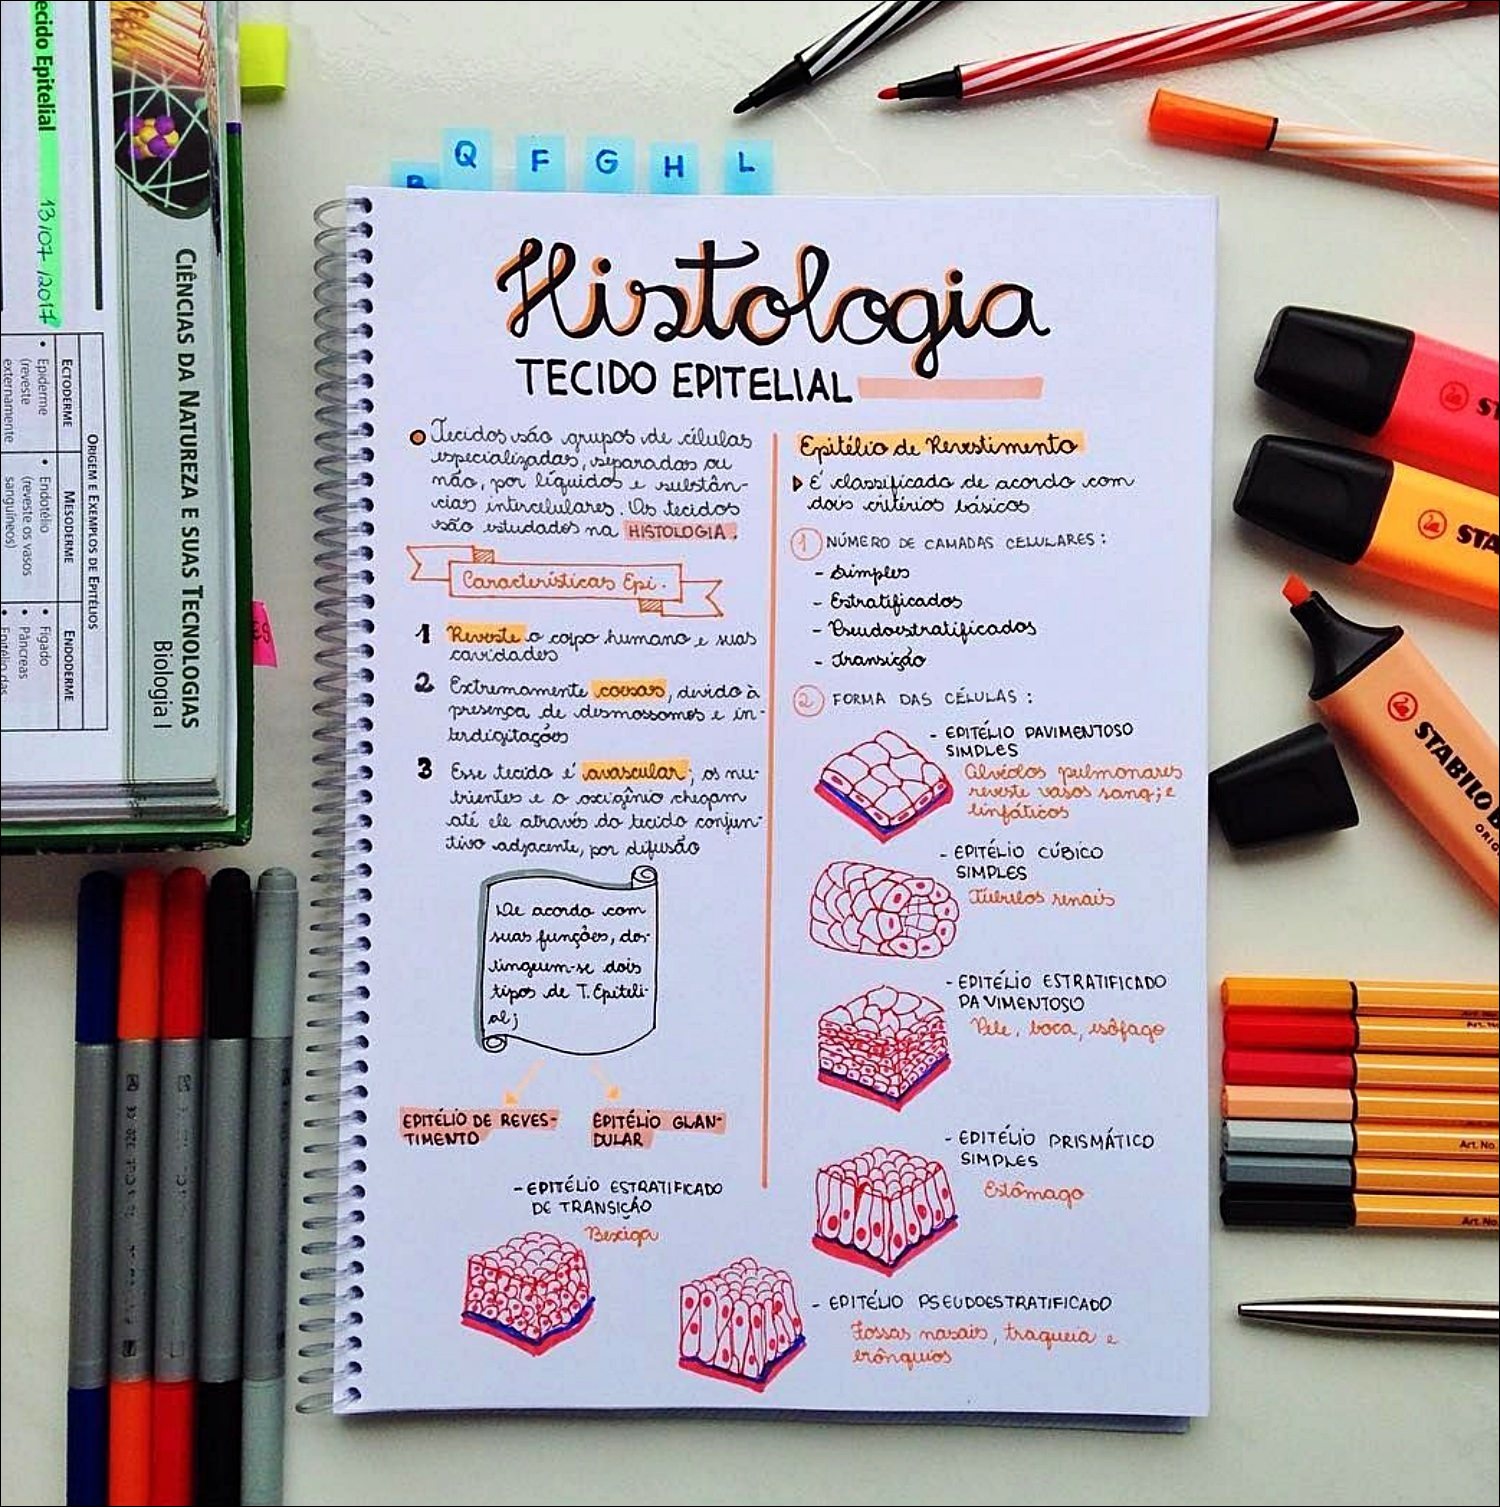 ecido Epitelial 13/07/2017
ORIGEM E EXEMPLOS DE EPITÉLIOS
ECTODERME
MESODERME
ENDODERME
• Epiderme
(reveste
externamente
• Endotélio
(reveste os vasos
sanguíneos)
• Fígado
• Pâncreas
CIÊNCIAS DA NATUREZA E SUAS TECNOLOGIAS
Biologia I
Q F G H L
Histologia
TECIDO EPITELIAL
Tecidos são grupos de células
especializadas, separadas ou
não, por líquidos e substân-
cias intercelulares. Os tecidos
são estudados na HISTOLOGIA.
Características Epi.
1 Reveste o corpo humano e suas
cavidades
2 Extremamente coesas, devido à
presença de desmossomos e in-
terdigitações
3 Esse tecido é avascular; os nu-
trientes e o oxigênio chegam
até ele através do tecido conjun-
tivo adjacente, por difusão
De acordo com
suas funções, dis-
tinguem-se dois
tipos de T. Epiteli-
al;
EPITÉLIO DE REVES-
TIMENTO
EPITÉLIO GLAN-
DULAR
- EPITÉLIO ESTRATIFICADO
DE TRANSIÇÃO
Bexiga
Epitélio de Revestimento
É classificado de acordo com
dois critérios básicos
1 NÚMERO DE CAMADAS CELULARES:
- Simples
- Estratificados
- Pseudoestratificados
- Transição
2 FORMA DAS CÉLULAS:
- EPITÉLIO PAVIMENTOSO
SIMPLES
Alvéolos pulmonares
reveste vasos sang; e
linfáticos
- EPITÉLIO CÚBICO
SIMPLES
Túbulos renais
- EPITÉLIO ESTRATIFICADO
PAVIMENTOSO
Pele, boca, esôfago
- EPITÉLIO PRISMÁTICO
SIMPLES
Estômago
- EPITÉLIO PSEUDOESTRATIFICADO
Fossas nasais, traqueia e
brônquios
ST
STA
STABILO B
ORIG
Art. No.
Art. No.
Art. No.